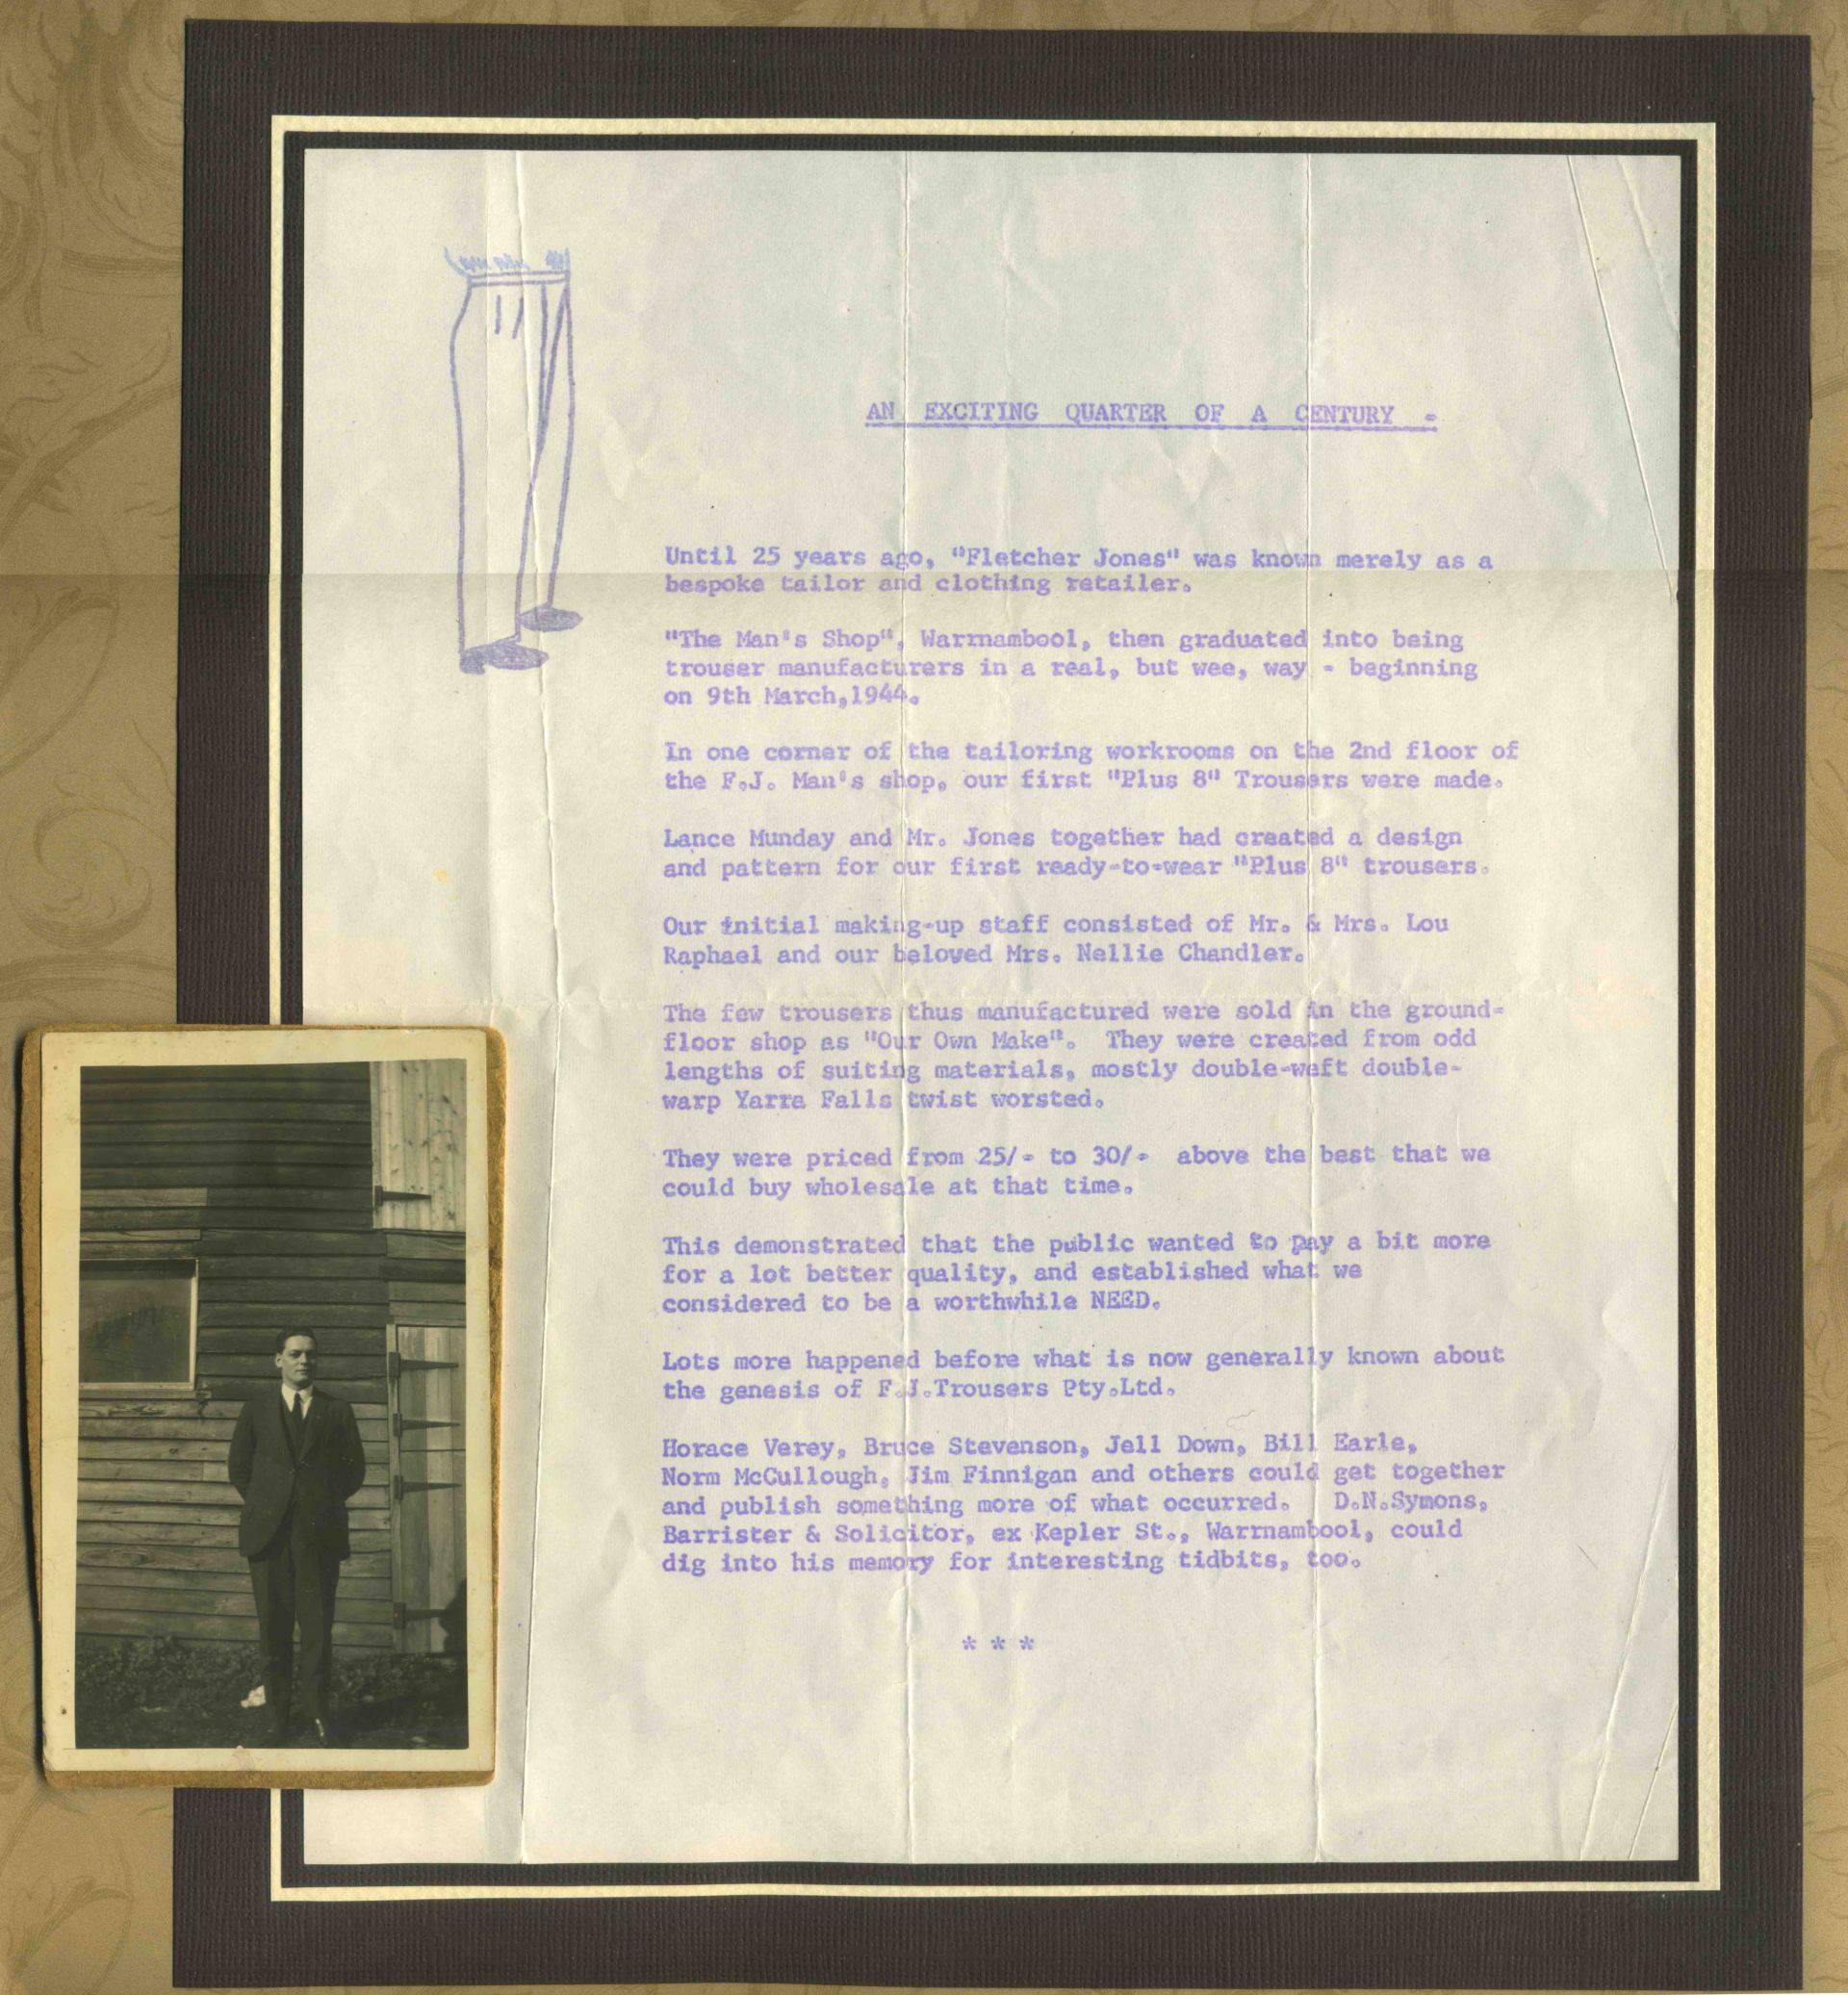 AN EXCITING QUARTER OF A CENTURY -
Until 25 years ago, "Fletcher Jones" was known merely as a
bespoke tailor and clothing retailer.
"The Man's Shop", Warrnambool, then graduated into being
trouser manufacturers in a real, but wee, way - beginning
on 9th March,1944.
In one corner of the tailoring workrooms on the 2nd floor of
the F.J. Man's shop, our first "Plus 8" Trousers were made.
Lance Munday and Mr. Jones together had created a design
and pattern for our first ready-to-wear "Plus 8" trousers.
Our initial making-up staff consisted of Mr. & Mrs. Lou
Raphael and our beloved Mrs. Nellie Chandler.
The few trousers thus manufactured were sold in the ground-
floor shop as "Our Own Make". They were created from odd
lengths of suiting materials, mostly double-weft double-
warp Yarra Falls twist worsted.
They were priced from 25/- to 30/- above the best that we
could buy wholesale at that time.
This demonstrated that the public wanted to pay a bit more
for a lot better quality, and established what we
considered to be a worthwhile NEED.
Lots more happened before what is now generally known about
the genesis of F.J.Trousers Pty.Ltd.
Horace Verey, Bruce Stevenson, Jell Down, Bill Earle,
Norm McCullough, Jim Finnigan and others could get together
and publish something more of what occurred. D.N.Symons,
Barrister & Solicitor, ex Kepler St., Warrnambool, could
dig into his memory for interesting tidbits, too.
* * *